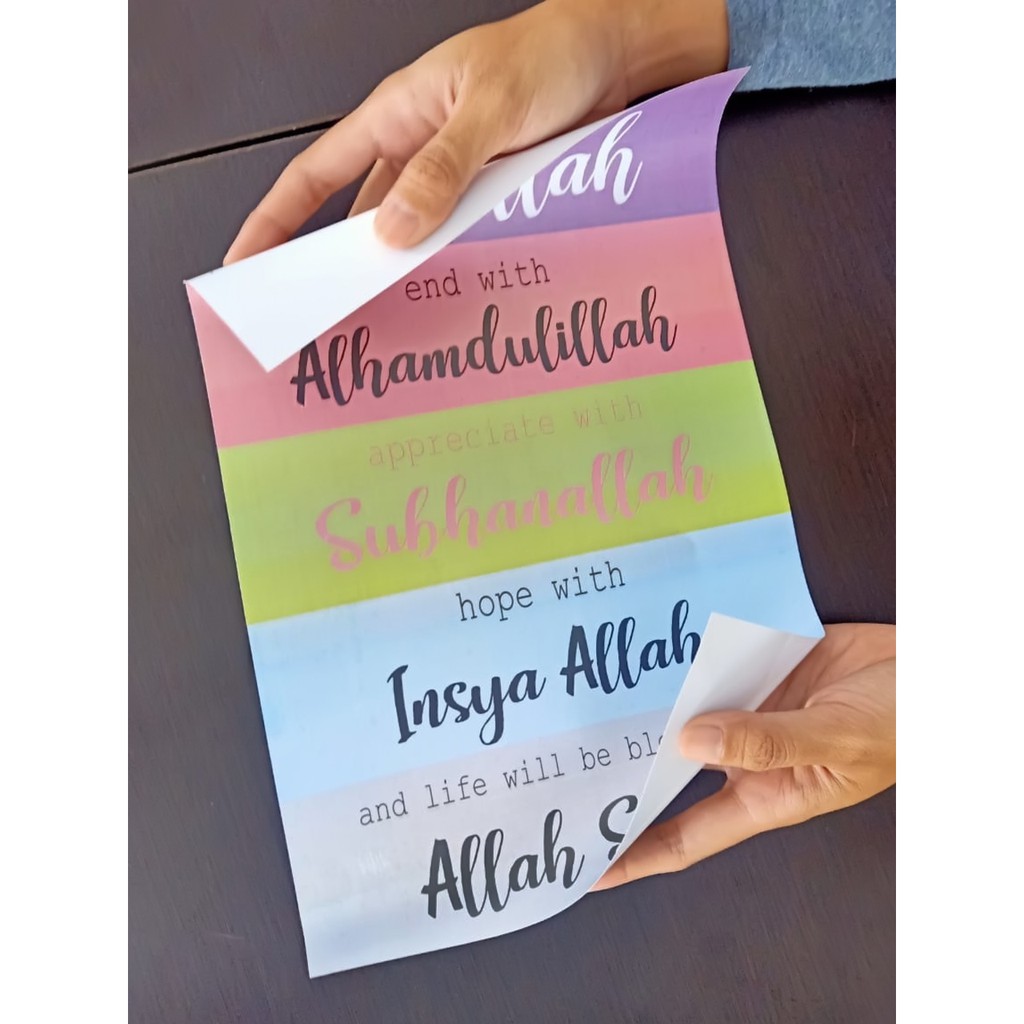 llah
end with
Alhamdulillah
appreciate with
Subhanallah
hope with
Insya Allah
and life will be ble
Allah S